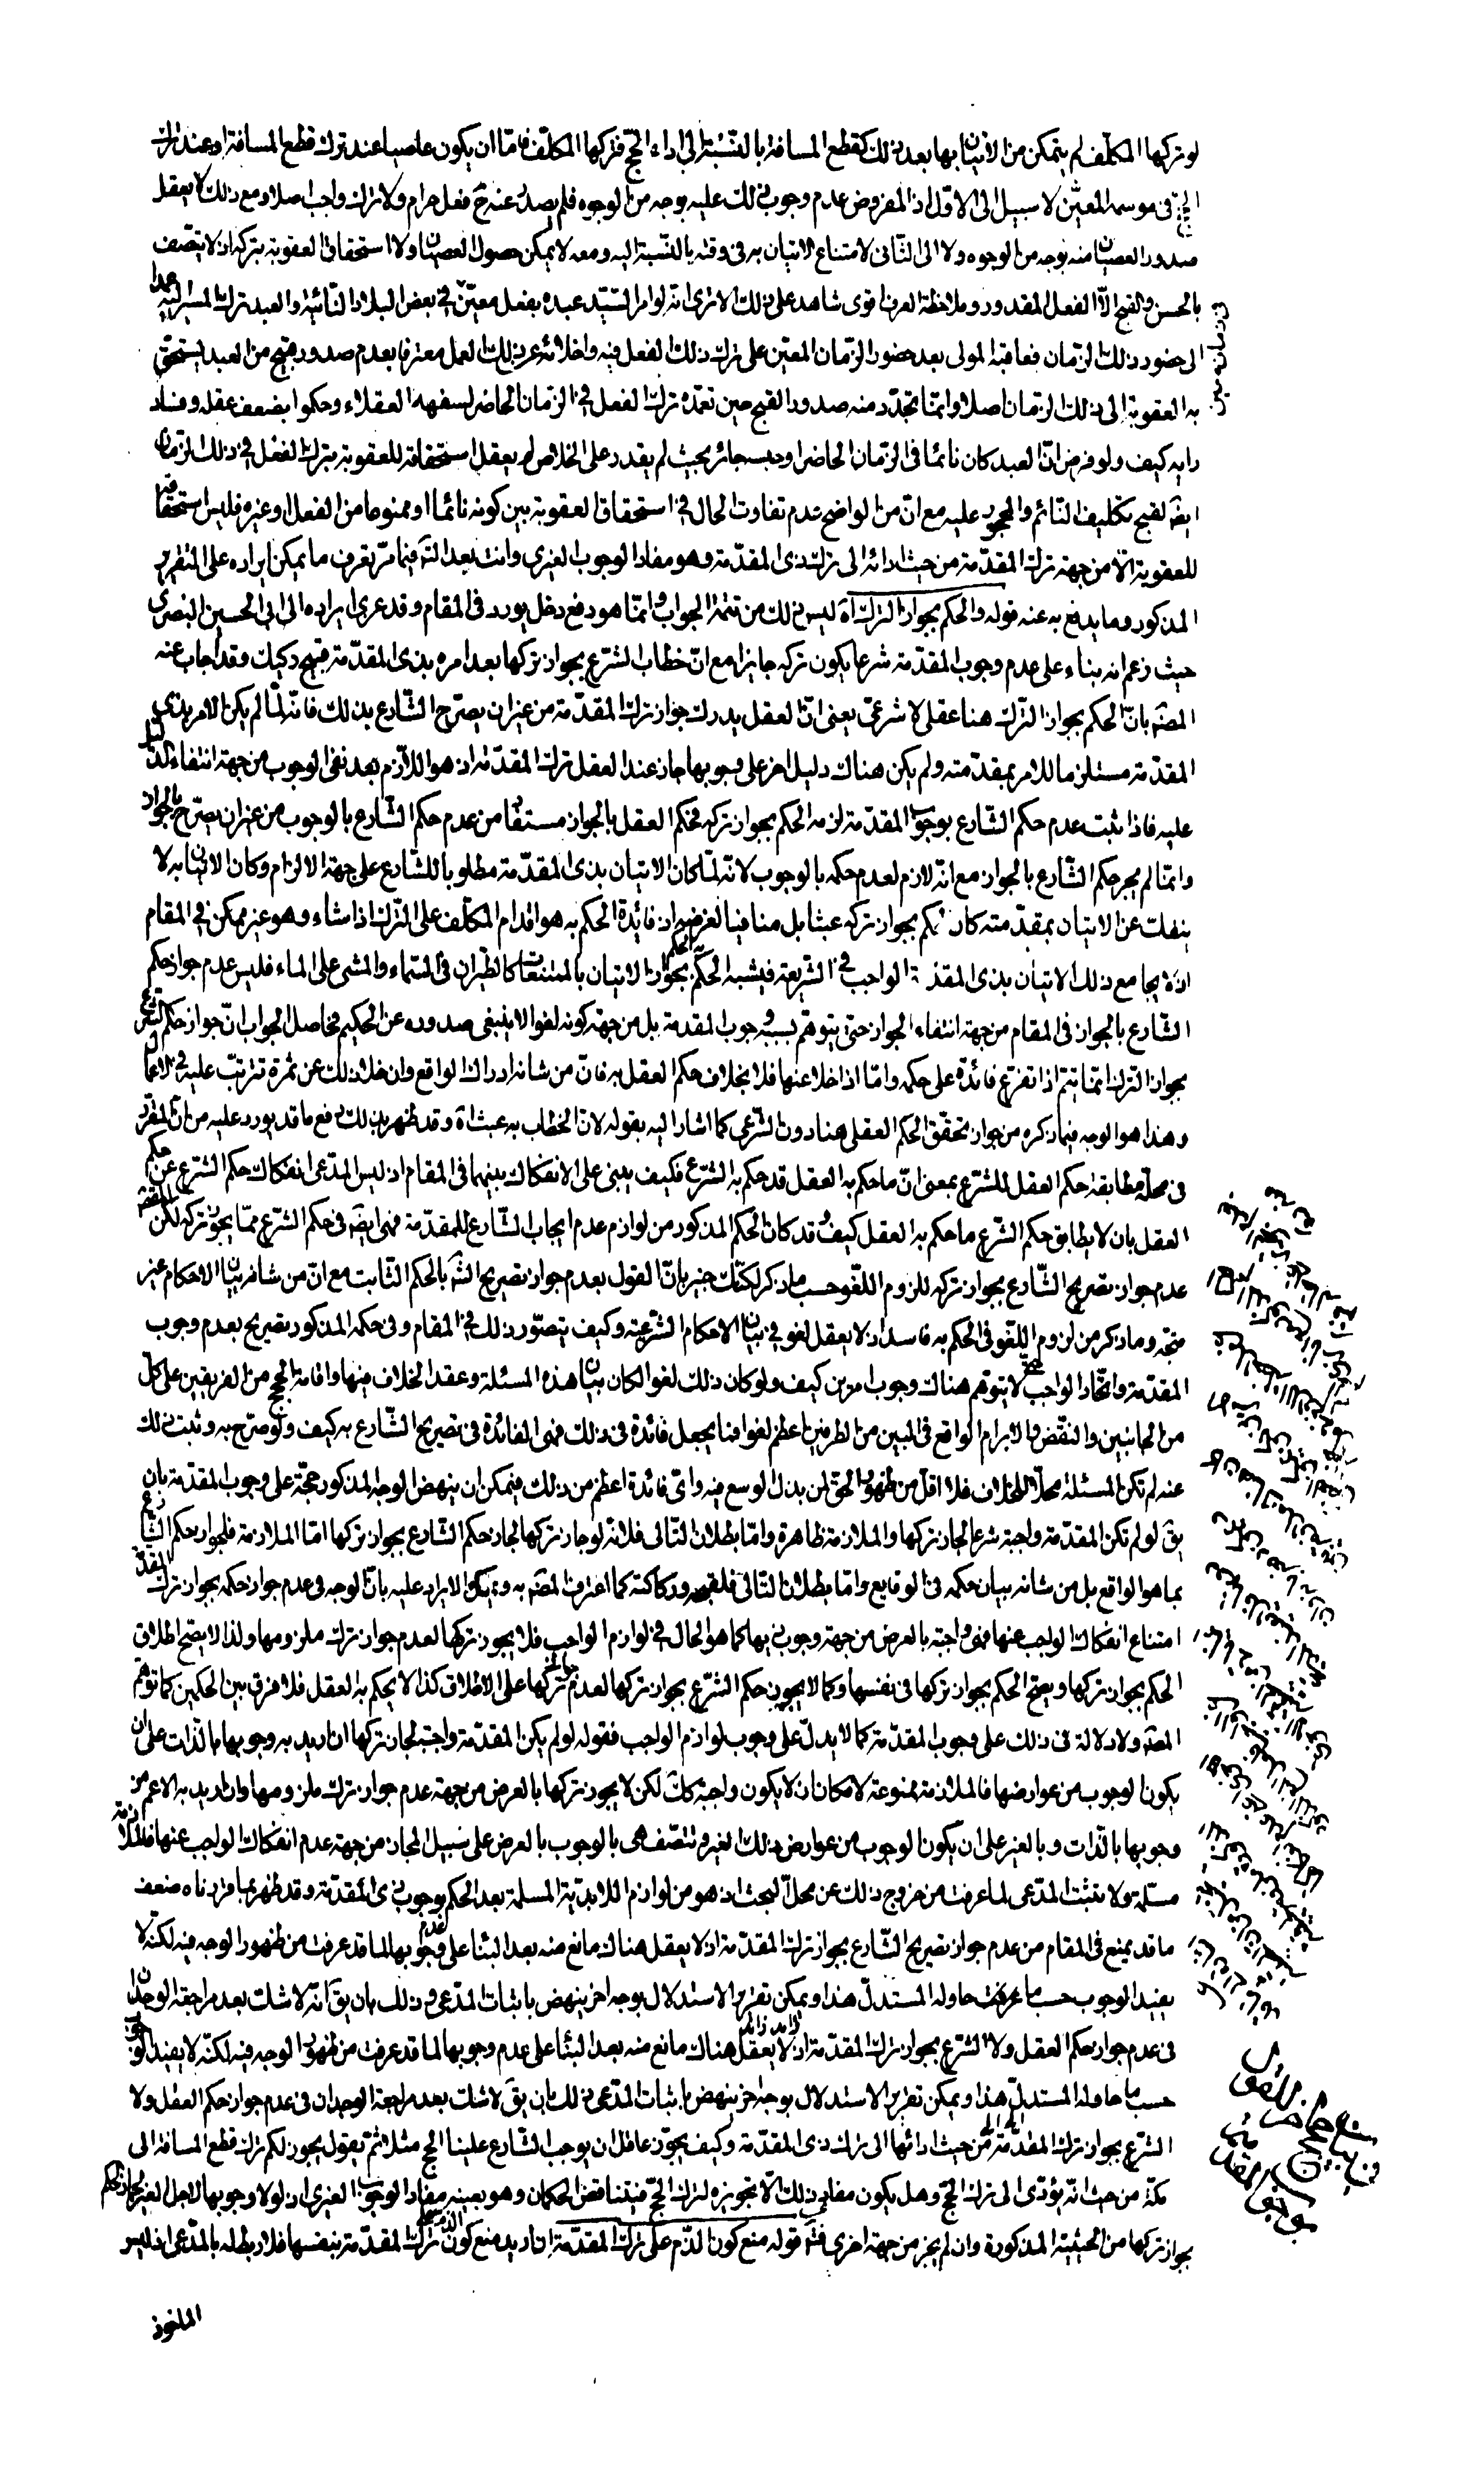 لو تركها المكلّف لم يتمكن من الاتيان بها بعد ذلك كقطع المسافة بالنّسبة الى اداء الحجّ فتركها المكلّف فامّا ان يكون عاصيا عند ترك قطع المسافة او عند ترك
الحجّ فى موسمه المعيّن لا سبيل الى الاوّل اذ المفروض عدم وجوب ذلك عليه بوجه من الوجوه فلم يصدر عنه ح فعل حرام ولا ترك واجب اصلا ومع ذلك لا يعقل
صدور العصيان منه بوجه من الوجوه ولا الى الثّانى لامتناع الاتيان به فى وقته بالنّسبة اليه ومعه لا يمكن حصول العصيان ولا استحقاق العقوبة بتركه اذ لا يتّصف
بالحسن والقبح الّا الفعل المقدور وملاحظة العرف اقوى شاهد على ذلك الا ترى انّه لو امر السّيّد عبده بفعل معيّن فى بعض البلاد النّائية والعبد ترك المسير اليه عمدا
الى حضور ذلك الزّمان فعاقبه المولى بعد حضور الزّمان المعيّن على ترك ذلك الفعل فيه واخلائه عن ذلك العمل معترفا بعدم صدور قبيح من العبد يستحق
به العقوبة الى ذلك الزّمان اصلا وانّما تجدّد منه صدور القبح حين تعمّده ترك الفعل فى الزمان الحاضر لسفهه العقلاء وحكموا بضعف عقله وفساد
رايه كيف ولو فرض انّ العبد كان نائما فى الزّمان الحاضر او حبسه جائر بحيث لم يقدر على الخلاص لم يعقل استحقاقه للعقوبة بترك الفعل فى ذلك الزمان
ايضا لقبح تكليف النّائم والمجبور عليه مع انّ من الواضح عدم تفاوت الحال فى استحقاق العقوبة بين كونه نائما او ممنوعا من الفعل او غيره فليس استحقاقه
للعقوبة الّا من جهة ترك المقدّمة من حيث ادائه الى ترك ذى المقدّمة وهو مفاد الوجوب الغيرى وانت بعد التّامل فيما مرّ تعرف ما يمكن ايراده على التقرير
المذكور وما يدفع به عنه قوله والحكم بجواز الترك اه ليس ذلك من تتمّة الجواب وانّما هو دفع دخل يورد فى المقام وقد عزى ايراده الى ابى الحسين البصرى
حيث زعم انه بناء على عدم وجوب المقدّمة شرعا يكون تركه جايزا مع انّ خطاب الشّرع بجواز تركها بعد امره بذى المقدّمة قبيح ركيك وقد اجاب عنه
المصّ بانّ الحكم بجواز التّرك هنا عقلى لا شرعىّ يعنى انّ العقل يدرك جواز ترك المقدّمة من غير ان يصرّح الشّارع بذلك فانّه لمّا لم يكن الامر بذى
المقدّمة مستلزما للامر بمقدّمته ولم يكن هناك دليل اخر على وجوبها جاز عند العقل ترك المقدّمة اذ هو اللّازم بعد نفى الوجوب من جهة انتفاء الدّليل
عليه فاذا ثبت عدم حكم الشّارع بوجوب المقدّمة لزمه الحكم بجواز تركه فحكم العقل بالجواز مستفاد من عدم حكم الشّارع بالوجوب من غير ان يصرّح بالجواز
وانّما لم يجز حكم الشّارع بالجواز مع انّه لازم لعدم حكمه بالوجوب لانّه لمّا كان الاتيان بذى المقدّمة مطلوبا للشّارع على جهة الالزام وكان الاتيان به لا
ينفك عن الاتيان بمقدّمته كان الحكم بجواز تركه عبثا بل منافيا لغرضه اذ فائدة الحكم به هو اقدام المكلّف على التّرك اذا شاء وهو غير ممكن فى المقام
اذ لا يجامع ذلك الاتيان بذى المقدمة الواجب فى الشّريعة فيشبه الحكم به الحكم بجواز الاتيان بالممتنعات كالطّيران فى السّماء والمشى على الماء فليس عدم جواز حكم
الشّارع بالجواز فى المقام من جهة انتفاء الجواز حتى يتوهّم بسببه وجوب المقدمة بل من جهة كونه لغوا لا ينبغى صدوره عن الحكيم فحاصل الجواب انّ جواز حكم الشّرع
بجواز الترك انّما يتم اذا تفرّع فائدة على حكمه وامّا اذا خلا عنها فلا بخلاف حكم العقل به فانّ من شانه ادراك الواقع وان خلا ذلك عن ثمرة تترتّب عليه فى الاعمال
وهذا هو الوجه فيما ذكره من جواز تحقق الحكم العقلى هنا دون الشّرعى كما اشار اليه بقوله لانّ الخطاب به عبث اه وقد ظهر بذلك دفع ما قد يورد عليه من انّ المقرّر
فى محلّه مطابقة حكم العقل للشّرع بمعنى انّ ما حكم به العقل قد حكم به الشّرع فكيف يبنى على الانفكاك بينهما فى المقام اذ ليس المدّعى انفكاك حكم الشّرع عن حكم
العقل بان لا يطابق حكم الشّرع ما حكم به العقل كيف وقد كان الحكم المذكور من لوازم عدم ايجاب الشّارع للمقدّمة فهى ايضا فى حكم الشّرع ممّا يجوز تركه لكن المقصود
عدم جواز تصريح الشّارع بجواز تركه للزوم اللّغو حسب ما ذكر لكنّك خبير بانّ القول بعدم جواز تصريح الشّرع بالحكم الثّابت مع انّ من شانه بيان الاحكام غير
متّجه وما ذكر من لزوم اللّغو فى الحكم به فاسد اذ لا يعقل لغو فى بيان الاحكام الشّرعيّة وكيف يتصوّر ذلك فى المقام وفى حكمه المذكور تصريح بعدم وجوب
المقدّمة واتّحاد الواجب حتى لا يتوهّم هناك وجوب امرين كيف ولو كان ذلك لغوا لكان بيان هذه المسئلة وعقد الخلاف فيها واقامة الحجج من الفريقين على كلّ
من الجانبين والنقض والابرام الواقع فى البين من الطرفين اعظم لغوا فما يجعل فائدة فى ذلك فهى الفائدة فى تصريح الشّارع به كيف ولو صرّح به وثبت ذلك
عنه لم تكن المسئلة محلّا للخلاف فلا اقلّ من ظهور الحق لمن بذل الوسع فيه واىّ فائدة اعظم من ذلك فيمكن ان ينهض الوجه المذكور حجّة على وجوب المقدّمة بان
يقال لو لم تكن المقدّمة واجبة شرعا لجاز تركها والملازمة ظاهرة وامّا بطلان التّالى فلانّه لو جاز تركها لجاز حكم الشّارع بجواز تركها امّا الملازمة فلجواز حكم الشّارع
بما هو الواقع بل من شانه بيان حكمه فى الوقايع وامّا بطلان التّالى فلقبحه وركاكته كما اعترف المصّ به ويمكن الايراد عليه بانّ الوجه فى عدم جواز حكمه بجواز ترك المقدّمة
امتناع انفكاك الواجب عنها فهى واجبة بالعرض من جهة وجوب ذيها كما هو الحال فى لوازم الواجب فلا يجوز تركها لعدم جواز ترك ملزومها ولذا لا يصّح اطلاق
الحكم بجواز تركها ويصّح الحكم بجواز تركها فى نفسها وكما لا يجوز حكم الشّرع بجواز تركها لعدم جواز تركها على الاطلاق كذا لا يحكم به العقل فلا فرق بين الحكمين كما توهّم
المصّ ولا دلالة فى ذلك على وجوب المقدّمة كما لا يدلّ على وجوب لوازم الواجب فقوله لو لم يكن المقدّمة واجبة لجاز تركها ان اريد به وجوبها بالّذات على ان
يكون الوجوب من عوارضها فالملازمة ممنوعة لامكان ان لا يكون واجبة كك لكن لا يجوز تركها بالعرض من جهة عدم جواز ترك ملزومها وان اريد به الاعم من
وجوبها بالّذات وبالغير على ان يكون الوجوب من عوارض ذلك الغير وتتصّف هى بالوجوب بالعرض على سبيل المجاز من جهة عدم انفكاك الواجب عنها فالملازمة
مسلّمة ولا يثبت المدّعى لما عرفت من خروج ذلك عن محلّ البحث اذ هو من لوازم اللابديّة المسلمة بعد الحكم بوجوب ذى المقدّمة وقد ظهر بما قررناه ضعف
ما قد يمنع فى المقام من عدم جواز تصريح الشّارع بجواز ترك المقدّمة اذ لا يعقل هناك مانع منه بعد البناء على عدم وجوبها لما قد عرفت من ظهور الوجه فيه لكنّه لا
يفيد الوجوب حسب ما عرفت حاوله المستدلّ هذا ويمكن تقرير الاستدلال بوجه اخر ينهض باثبات المدّعى وذلك بان يقال انّه لا شك بعد مراجعة الوجدان
فى عدم جواز حكم العقل ولا الشّرع بجواز ترك المقدّمة اذ لا يعقل هناك مانع منه بعد البناء على عدم وجوبها لما قد عرفت من ظهور الوجه فيه لكنّه لا يفيد الوجوب
حسب ما حاوله المستدلّ هذا ويمكن تقرير الاستدلال بوجه اخر ينهض باثبات المدّعى ذلك بان يقال لا شك بعد مراجعة الوجدان فى عدم جواز حكم العقل ولا
الشّرع بجواز ترك المقدّمة من حيث ادائها الى ترك ذى المقدّمة وكيف يجوّز عاقل ان يوجب الشّارع علينا الحج مثلا ثم يقول يجوز لكم ترك قطع المسافة الى
مكّة من حيث انّه يؤدّى الى ترك الحجّ وهل يكون مفاد ذلك الّا تجويزه لترك الحجّ فيتناقض الحكمان وهو بعينه مفاد الوجوب الغيرى اذ لولا وجوبها لاجل الغير لجاز الحكم
بجواز تركها من الحيثيّة المذكورة وان لم يجز من جهة اخرى فتم قوله منع كون الذّم على ترك المقدّمة ان اريد منع كون الذم على ترك المقدّمة بنفسها فلا ربط له بالمدّعى اذ ليس
الماخوذ